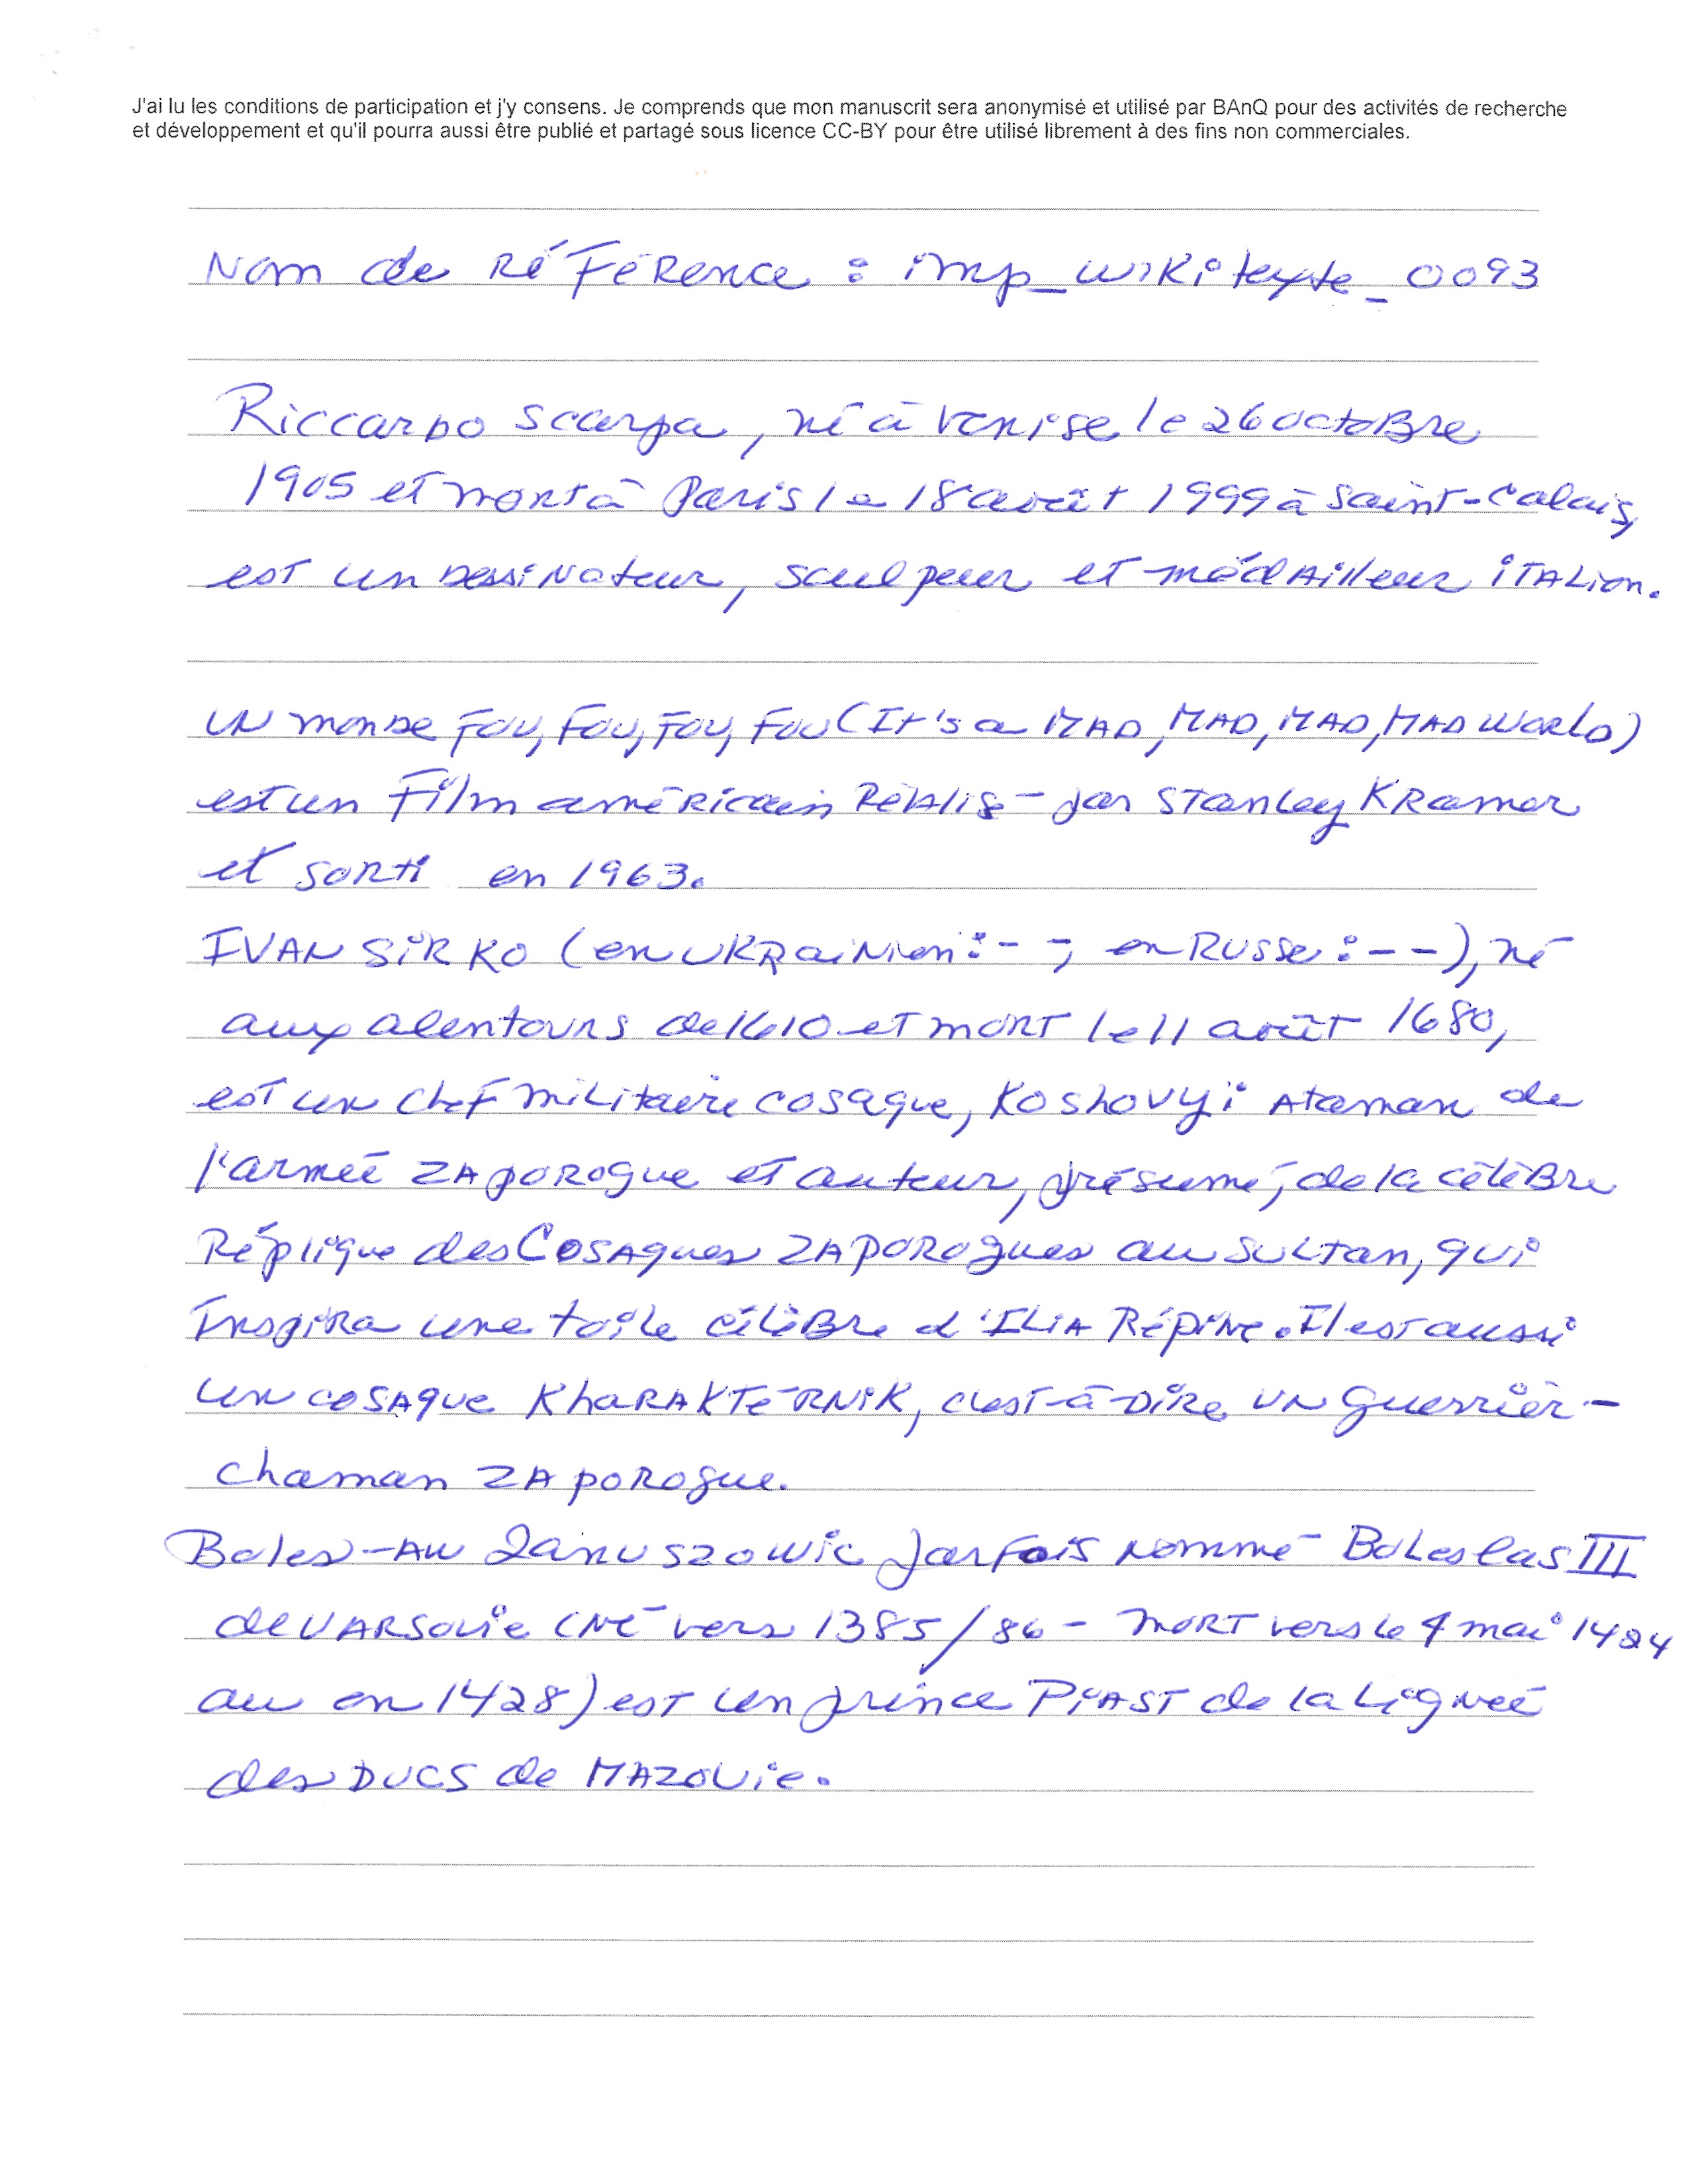 J'ai lu les conditions de participation et j'y consens. Je comprends que mon manuscrit sera anonymisé et utilisé par BAnQ pour des activités de recherche
et développement et qu'il pourra aussi être publié et partagé sous licence CC-BY pour être utilisé librement à des fins non commerciales.
Nom de Référence : imp_wikitexte_0093
Riccardo Scarpa, né à Venise le 26 octobre
1905 et mort à Paris le 18 août 1999 à Saint-Calais,
est un dessinateur, sculpeur et médailleur italion.
UN monde Fou, Fou, Fou, Fou (It's a MAD, MAD, MAD, MAD World)
est un Film américain Réalisé par Stanley Kramer
et sorti en 1963.
IVAN SIRKO (en ukrainien : - - ; en Russe : - -), né
aux alentours de 1610 et mort le 11 août 1680,
est un chef militaire cosaque, Koshovyi Ataman de
l'armée zaporogue et auteur, présumé, de la célèbre
Réplique des Cosaques zaporogues au sultan, qui
Inspira une toile célèbre d'Ilia Répine. Il est aussi
un cosaque Kharakternik, c'est-à-dire un guerrier-
chaman zaporogue.
Boles-aw Januszowic parfois nommé Boleslas III
de Varsovie (né vers 1385/86 - mort vers le 4 mai 1424
au en 1428) est un prince Piast de la Lignée
des DUCS de MAZOVie.